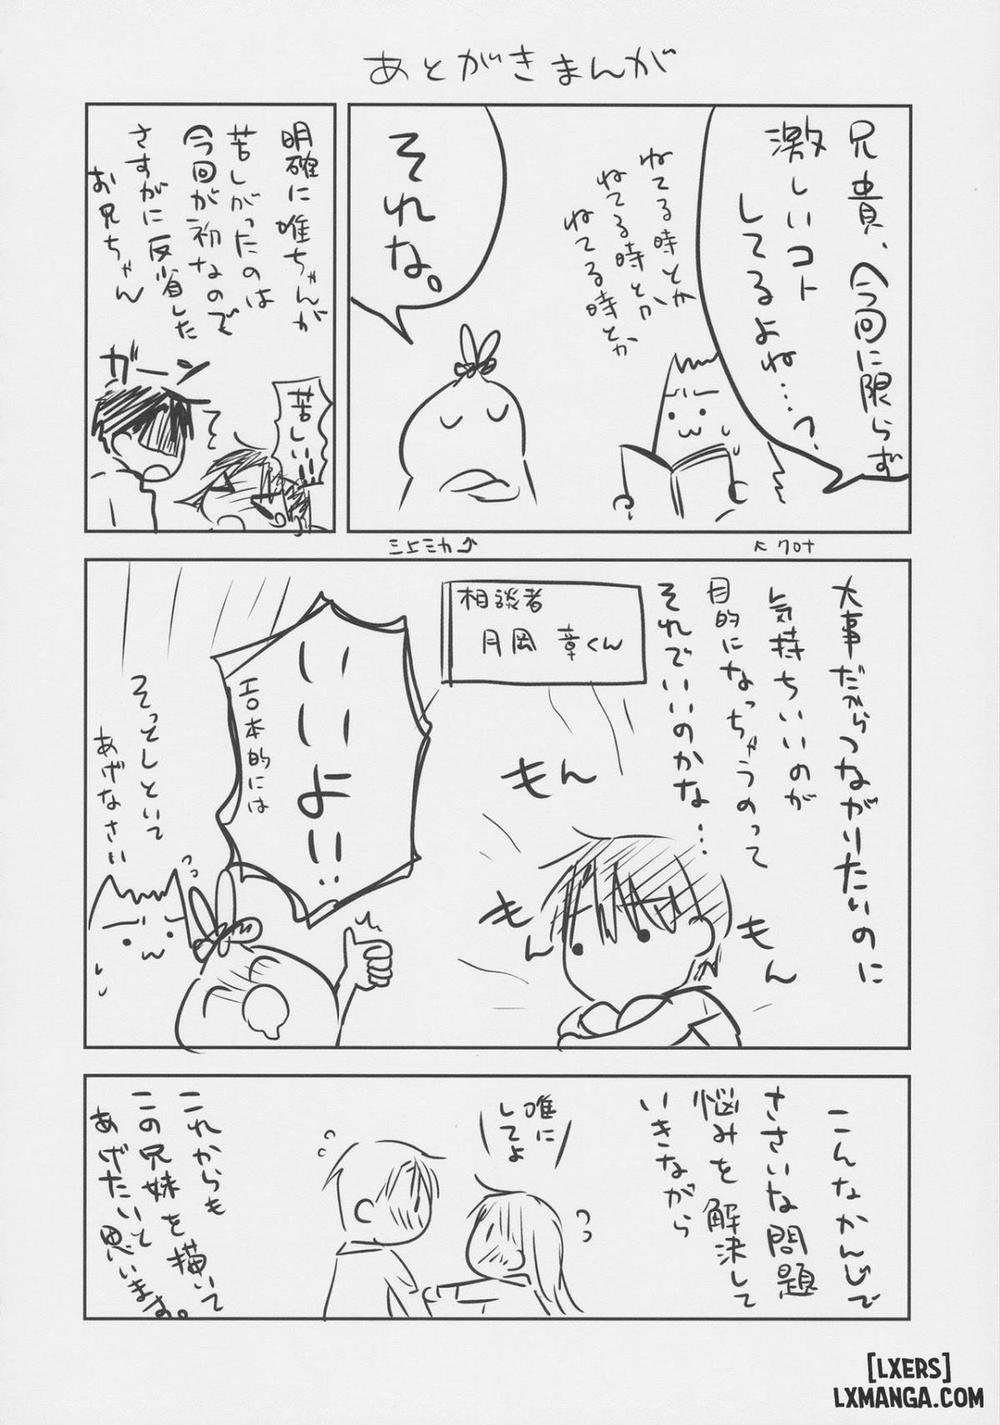 あとがきまんが
兄貴、今回に限らず
激しいコト
してるよね…?
ねてる時とか
ねてる時とか
ねてる時とか
それな。
明確に唯ちゃんが
苦しがったのは
今回が初なので
さすがに反省した
お兄ちゃん
ガーン
苦しい!!
三上ミカ
クロサ
大事だからつながりたいのに
気持ちいいのが
目的になっちゃうのって
それでいいのかな…
相談者
月岡 章くん
もん
もん
もん
いいよ!!
エロ本的には
そっとしといて
あげなさい
こんなかんじで
ささいな問題
悩みを解決して
いきながら
唯に
してよ
これからも
この兄妹を描いて
あげたいと
思います。
[LXERS]
LXMANGA.COM